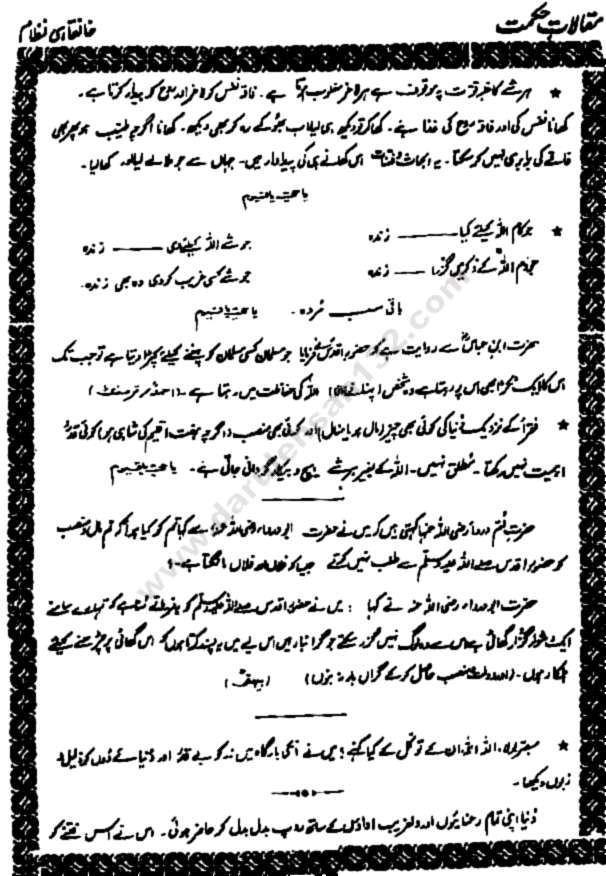 مقالاتِ حکمت
خانقاہی نظام
★ ہر شے کا غلبہ قوت پہ موقوف ہے ہر لاغر مغلوب ہوتا ہے۔ فاقہ نفس کو لاغر اور روح کو بیدار کرتا ہے۔
کھانا نفس کی اور فاقہ روح کی غذا ہے۔ کھا کر تو دیکھ ہی لیا اب بھوکے رہ کر بھی دیکھ۔ کھانا اگرچہ طیب ہو پھر بھی
فاقے کی برابری نہیں کر سکتا۔ یہ اس کھانے ہی کی پیداوار ہیں۔ جہاں سے جو ملا لے لیا اور کھا لیا۔
یا حی یا قیوم
★ جو کام اللہ کیلئے کیا ——— زندہ
جو شے اللہ کیلئے دی ——— زندہ
جو دم اللہ کے ذکر میں گزرا ——— زندہ
جو شے کسی غریب کو دی وہ بھی زندہ۔
باقی سب مُردہ۔ یا حی یا قیوم
حضرت ابن عباسؓ سے روایت ہے کہ حضورِ اقدس نے فرمایا جو مسلمان کسی مسلمان کو پہننے کیلئے کپڑا دیتا ہے تو جب تک
اس کا ایک ٹکڑا بھی اس پر رہتا ہے وہ شخص اللہ کی حفاظت میں رہتا ہے۔ (احمد، ترمذی)
★ فقرأ کے نزدیک دنیا کی کوئی بھی چیز (مال ہو یا منال) اور کوئی بھی منصب (اگرچہ ہفت اقلیم کی شاہی ہو) کوئی قدر
اہمیت نہیں رکھتا۔ مُطلق نہیں۔ اللہ کے بغیر ہر شے ہیچ و بیکار گردانی جاتی ہے۔ یا حی یا قیوم
حضرت اُم دردأ رضی اللہ عنہا کہتی ہیں کہ میں نے حضرت ابو درداء رضی اللہ عنہ سے کہا تم کو کیا ہوا کہ تم مال و منصب
کو حضورِ اقدس صلے اللہ علیہ وسلم سے طلب نہیں کرتے جیسا کہ فلاں اور فلاں مانگتا ہے۔؟
حضرت ابو درداء رضی اللہ عنہ نے کہا : میں نے حضورِ اقدس صلے اللہ علیہ وسلم کو یہ فرماتے سُنا ہے کہ تمہارے سامنے
ایک دشوار گزار گھاٹی ہے اس سے وہ لوگ نہیں گزر سکتے جو گرانبار ہیں اس لیے میں یہ پسند کرتا ہوں کہ اس گھاٹی پر چڑھنے کیلئے
ہلکا رہوں۔ (اور دولت و منصب حاصل کر کے گراں بار نہ بنوں) (بیہقی)
★ اللہ اللہ ان کے توکّل کے کیا کہنے! میں نے انکی بارگاہ میں زر کو بے قدر اور دُنیائے دُوں کو ذلیل و
زبوں دیکھا۔
دُنیا اپنی تمام رعنائیوں اور دلفریب اداؤں کے ساتھ روپ بدل بدل کر حاضر ہوئی۔ اس نے اس فتنے کو
www.darulehsan192.com